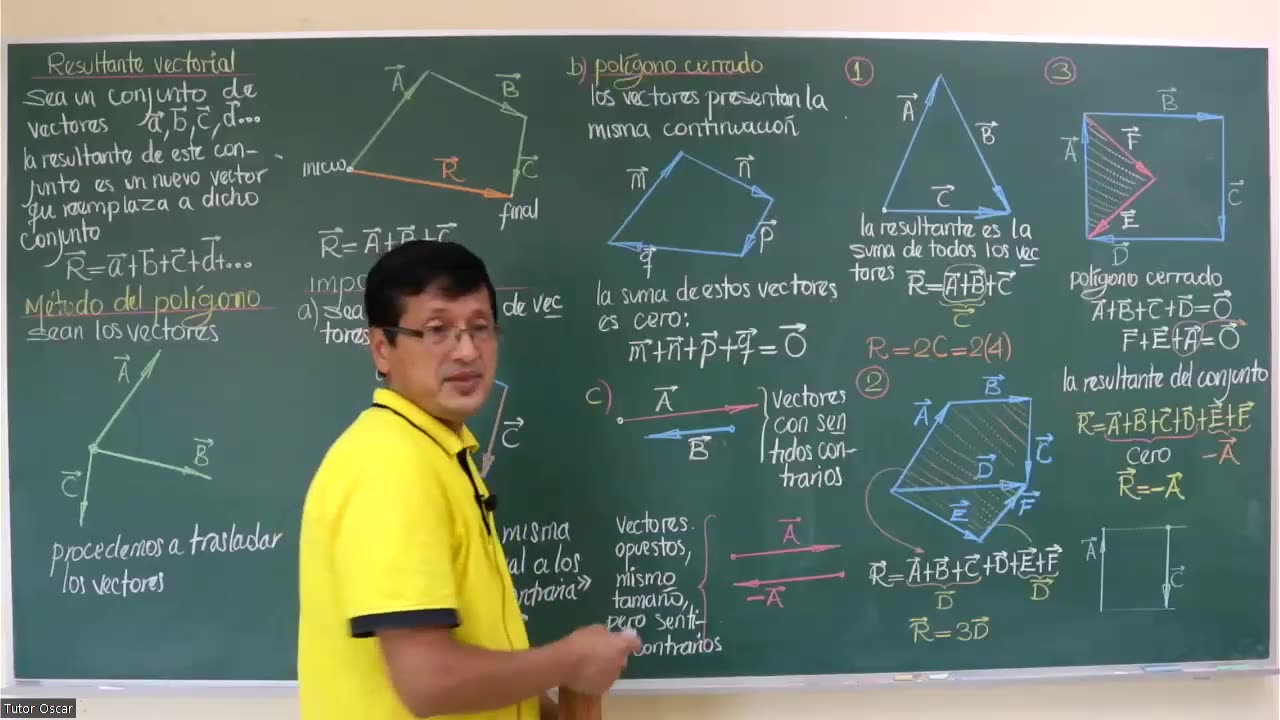 Resultante vectorial
Sea un conjunto de
vectores a⃗, b⃗, c⃗, d⃗...
la resultante de este con-
junto es un nuevo vector
que reemplaza a dicho
conjunto
R⃗=a⃗+b⃗+c⃗+d⃗+...
Método del polígono
Sean los vectores
A⃗
B⃗
C⃗
procedemos a trasladar
los vectores
A⃗
B⃗
C⃗
inicio
R⃗
final
R⃗=A⃗+B⃗+C⃗
a) sea
de vec
tores
C⃗
misma
al a los
b) polígono cerrado
los vectores presentan la
misma continuación
m⃗
n⃗
p⃗
q⃗
la suma de estos vectores
es cero:
m⃗+n⃗+p⃗+q⃗=0⃗
c)
A⃗
B⃗
Vectores
con sen
tidos con-
trarios
Vectores.
opuestos,
mismo
tamaño,
pero senti-
contrarios
A⃗
-A⃗
1
A⃗
B⃗
C⃗
la resultante es la
suma de todos los vec
tores R⃗=A⃗+B⃗+C⃗
C⃗
R=2C=2(4)
2
A⃗
B⃗
C⃗
D⃗
E⃗
F⃗
R⃗=A⃗+B⃗+C⃗+D⃗+E⃗+F⃗
D⃗
D⃗
R⃗=3D⃗
3
B⃗
A⃗
F⃗
C⃗
E⃗
D⃗
polígono cerrado
A⃗+B⃗+C⃗+D⃗=0⃗
F⃗+E⃗+A⃗=0⃗
la resultante del conjunto
R⃗=A⃗+B⃗+C⃗+D⃗+E⃗+F⃗
cero -A⃗
R⃗=-A⃗
A⃗
C⃗
Tutor Oscar